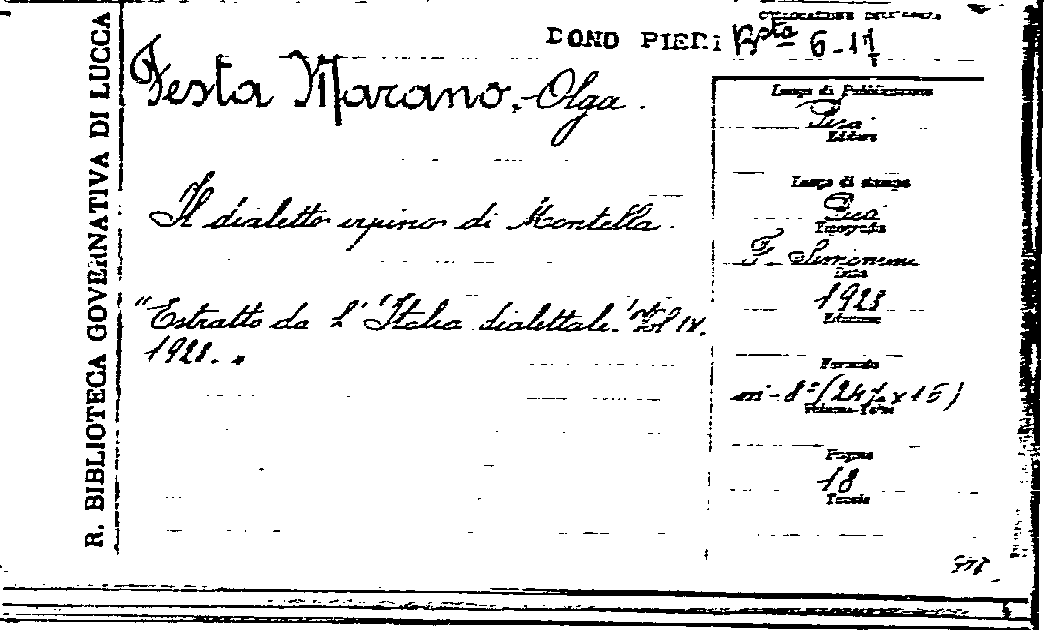 R. BIBLIOTECA GOVERNATIVA DI LUCCA
DONO PIERI Bsta 6-17
Festa Marano, Olga.
Il dialetto irpino di Montella.
"Estratto da L'Italia dialettale. Vol IV.
1928."
Luogo di Pubblicazione
Pisa
Editore
Luogo di stampa
Pisa
Tipografia
F. Simoncini
Data
1928
Edizione
Formato
in-8°(24½ x 15)
Volume-Tomi
Pagine
18
Tavole